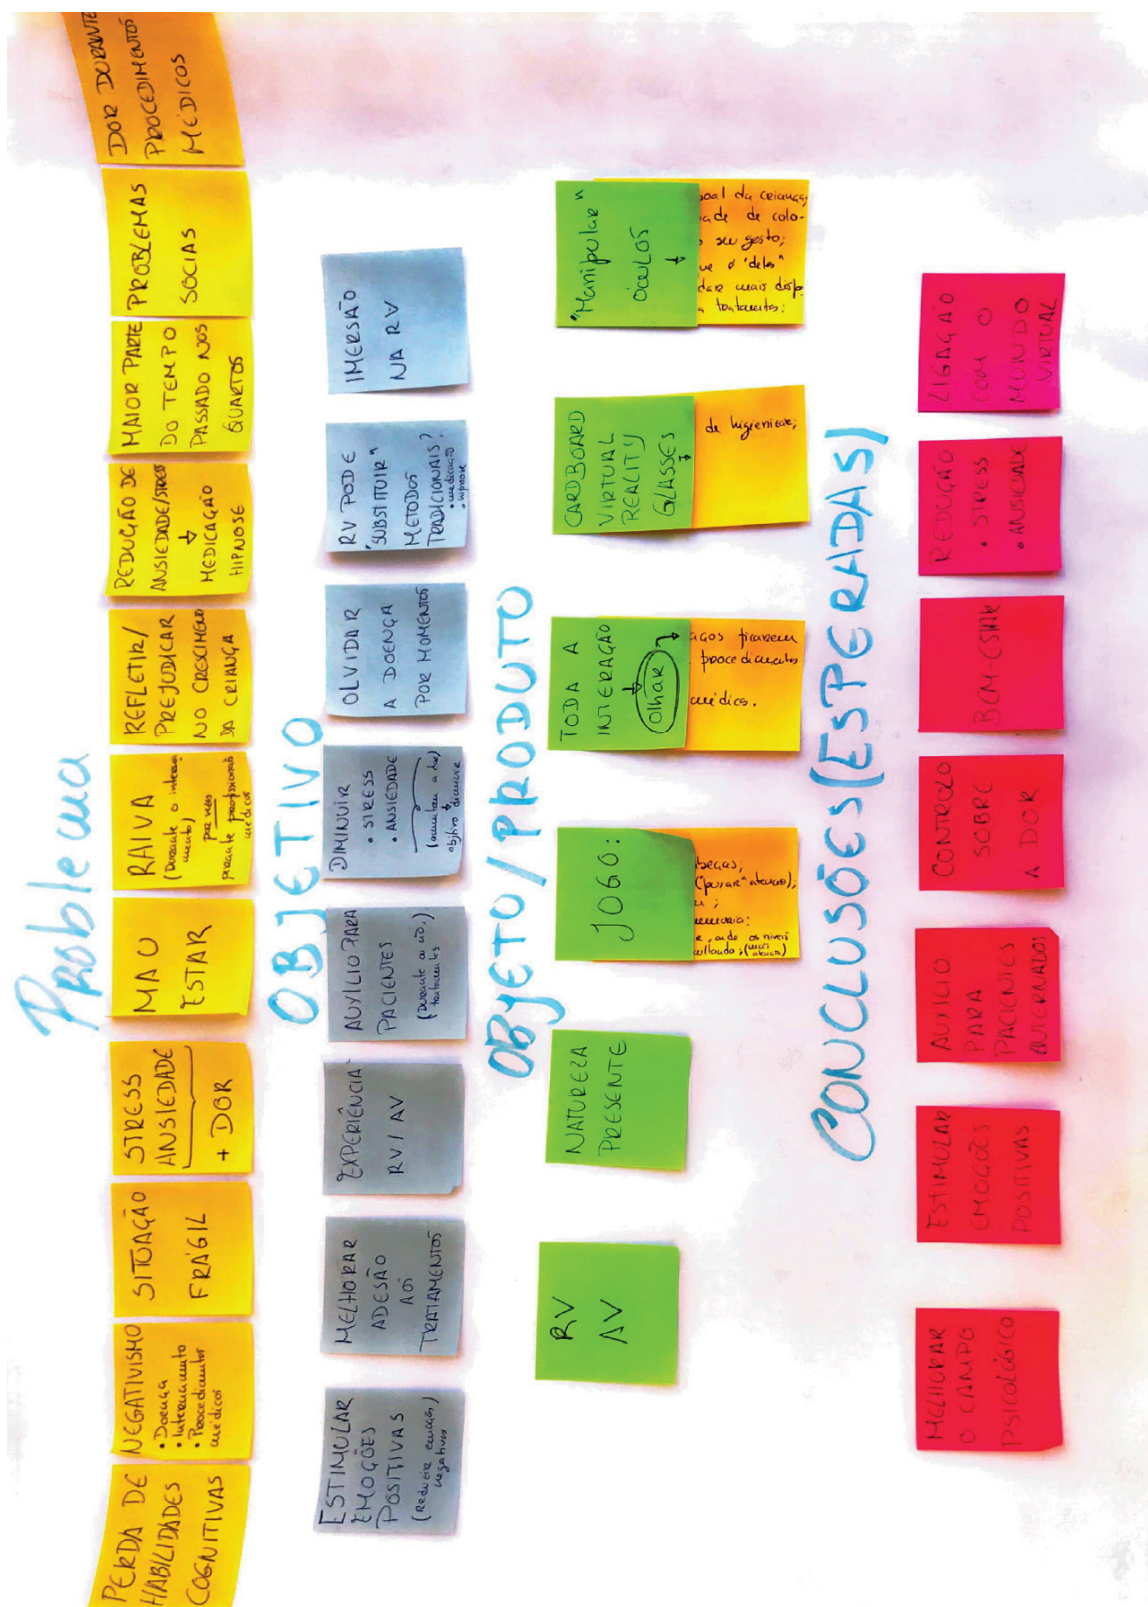 Problema
PERDA DE
HABILIDADES
COGNITIVAS
NEGATIVISMO
• Doença
• Internamento
• Procedimentos
médicos
SITUAÇÃO
FRÁGIL
STRESS
ANSIEDADE
+ DOR
MAU
ESTAR
RAIVA
(Durante o interna
mento)
por vezes
perante profissionais
médicos
REFLETIR/
PREJUDICAR
NO CRESCIMENTO
DA CRIANÇA
REDUÇÃO DE
ANSIEDADE/STRESS
↓
MEDICAÇÃO
HIPNOSE
MAIOR PARTE
DO TEMPO
PASSADO NOS
QUARTOS
PROBLEMAS
SOCIAS
DOR DURANTE
PROCEDIMENTOS
MÉDICOS
OBJETIVO
ESTIMULAR
EMOÇÕES
POSITIVAS
(Reducir emoções
negativas)
MELHORAR
ADESÃO
AOS
TRATAMENTOS
EXPERIÊNCIA
RV/AV
AUXÍLIO PARA
PACIENTES
(Durante ou não,)
tratamentos
DIMINUIR
• STRESS
• ANSIEDADE
(aumentam a dor)
objetivo diminuir
OLVIDAR
A DOENÇA
POR MOMENTOS
RV PODE
"SUBSTITUIR"
METODOS
TRADICIONAIS?
• medicação
• hipnose
IMERSÃO
NA RV
OBJETO/PRODUTO
RV
AV
NATUREZA
PRESENTE
JOGO:
beças;
("puxar" atencao);
;
memoria:
, onde os niveis
(mais
atencao)
TODA A
INTERAÇÃO
↓
olhar →
agos picarem
procedimentos
médicos.
CARDBOARD
VIRTUAL
REALITY
GLASSES
↓
de higienizar;
"Manipular"
ÓCULOS
↓
soal da criança;
ade de colo-
seu gosto;
ue é "deles"
dar mais disp.
a tratamentos;
CONCLUSÕES (ESPERADAS)
MELHORAR
O CAMPO
PSICOLÓGICO
ESTIMULAR
EMOÇÕES
POSITIVAS
AUXILIO
PARA
PACIENTES
INTERNADOS
CONTROLO
SOBRE
A DOR
BEM-ESTAR
REDUÇÃO
• STRESS
• ANSIEDADE
LIGAÇÃO
COM O
MUNDO
VIRTUAL